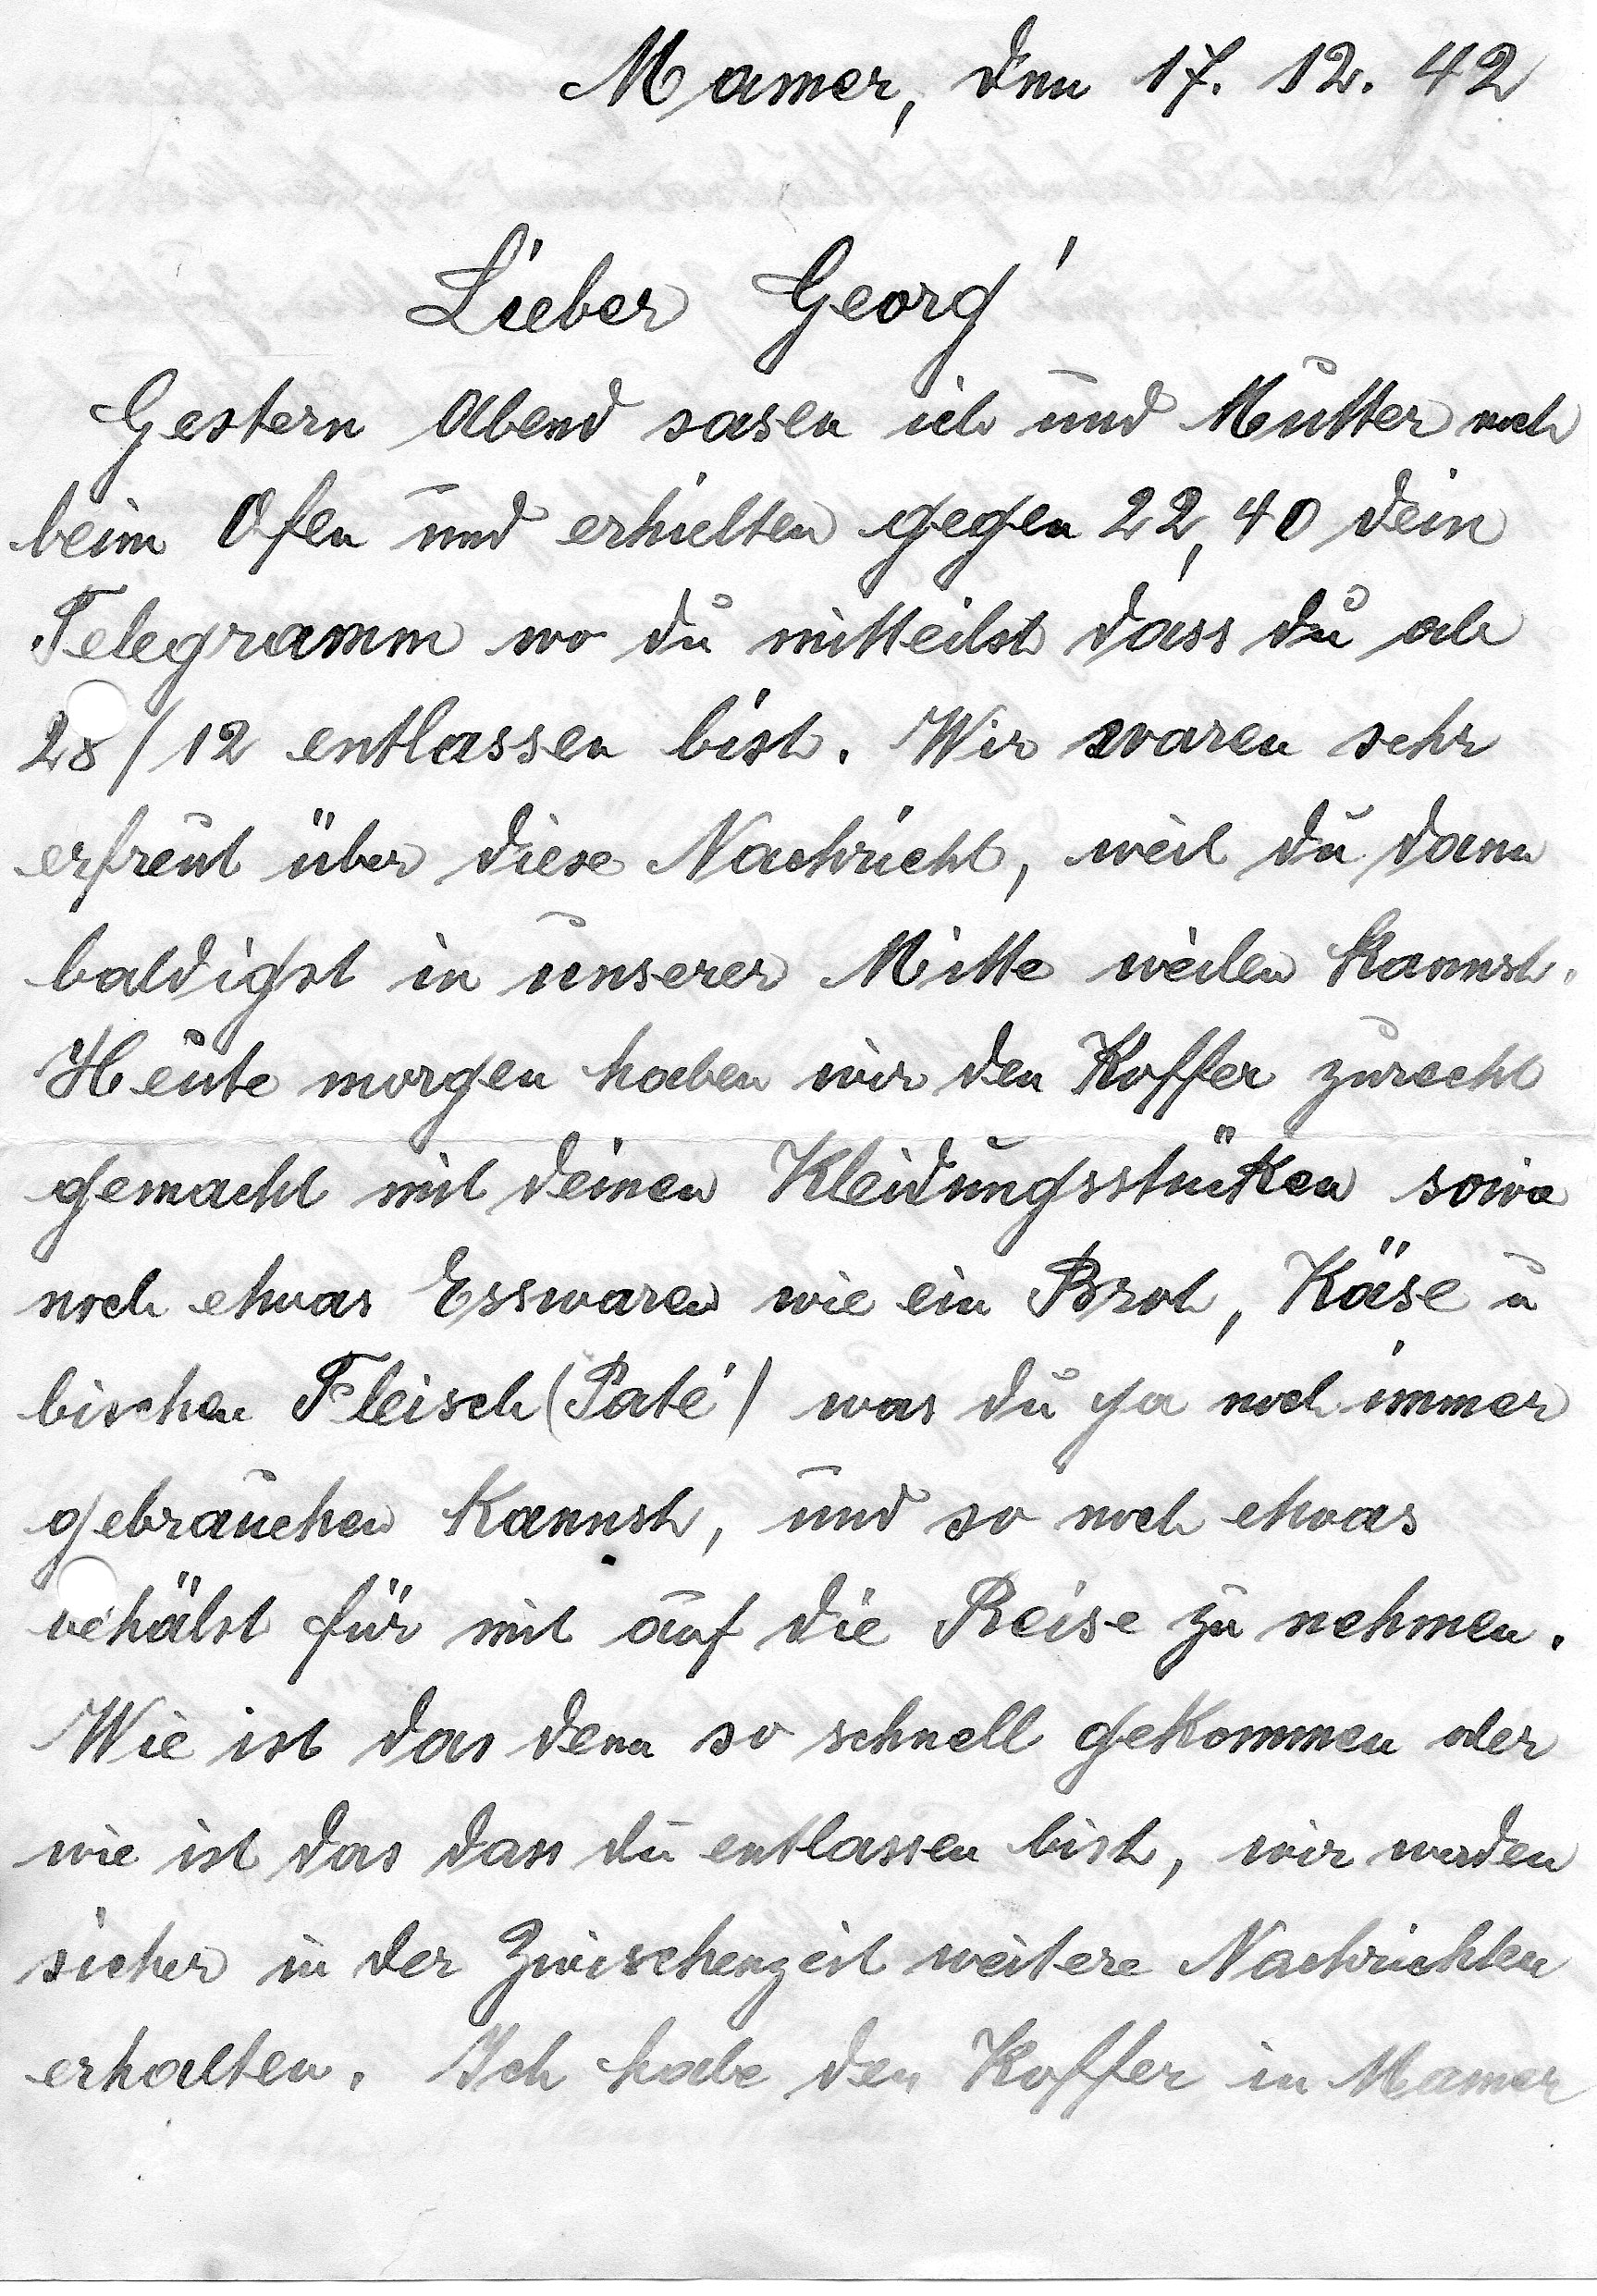 Mamer, den 17. 12. 42
Lieber Georg'
Gestern Abend sasen ich und Mutter noch
beim Ofen und erhielten gegen 22,40 dein
Telegramm wo du mitteilst dass du ab
28/12 entlassen bist. Wir waren sehr
erfreut über diese Nachricht, weil du dann
baldigst in unserer Mitte weilen kannst.
Heute morgen haben wir den Koffer zurecht
gemacht mit deinen Kleidungsstücken sowie
noch etwas Esswaren wie ein Brot, Käse u
bischen Fleisch (Paté) was du ja noch immer
gebrauchen kannst, und so noch etwas
behälst für mit auf die Reise zu nehmen.
Wie ist das denn so schnell gekommen oder
wie ist das dass du entlassen bist, wir werden
sicher in der Zwischenzeit weitere Nachrichten
erhalten. Ich habe den Koffer in Mamer